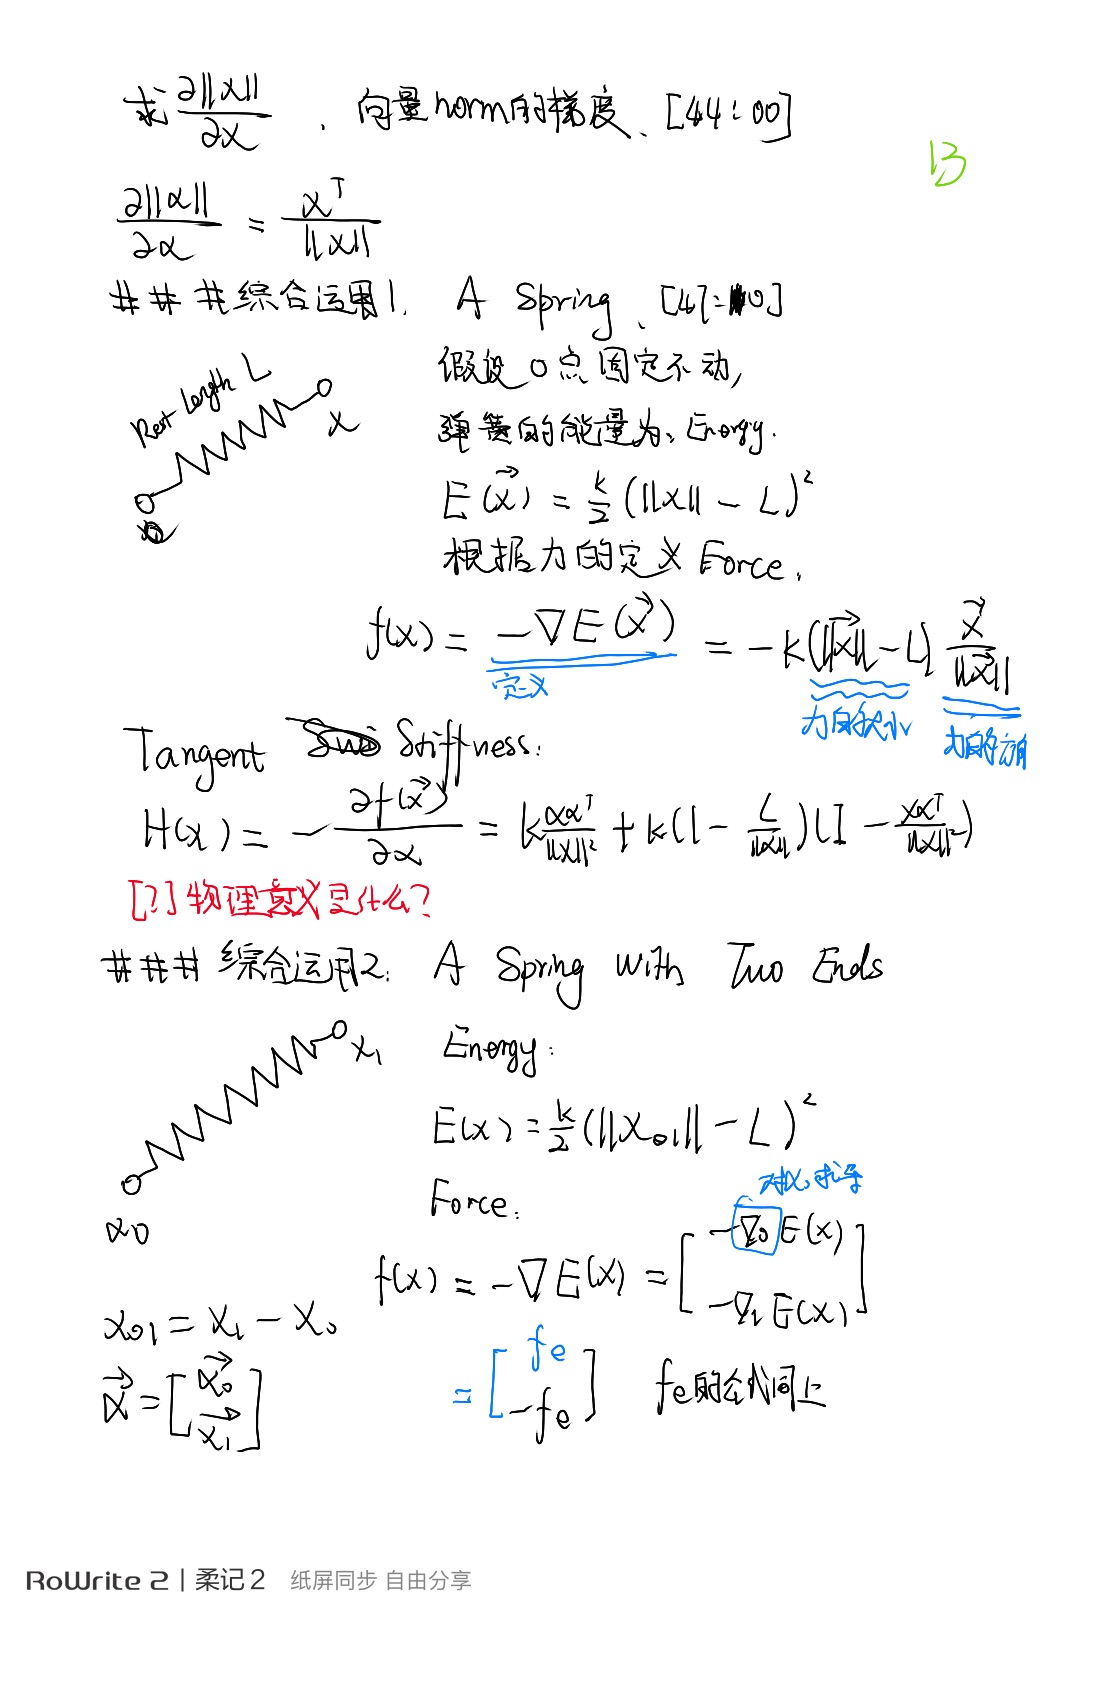 求 ∂||x||/∂x . 向量norm的梯度、[44:00]
13
∂||x||/∂x = xᵀ/||x||
### 综合运用1. A Spring、[47:10]
Rest Length L
x
假设0点固定不动,
弹簧的能量为: Energy.
E(x⃗) = k/2 (||x|| - L)²
根据力的定义 Force.
f(x) = -∇E(x⃗) = -k(||x⃗|| - L) x⃗/||x⃗||
定义
力的大小
力的方向
Tangent Stiffness:
H(x) = -∂f(x⃗)/∂x = k xxᵀ/||x||² + k(1 - L/||x||)(I - xxᵀ/||x||²)
[?] 物理意义是什么?
### 综合运用2: A Spring With Two Ends
x₁
Energy:
E(x) = k/2 (||x₀₁|| - L)²
对x₀求导
Force:
x0
f(x) = -∇E(x) = [-∇₀E(x)
-∇₁E(x)]
x₀₁ = x₁ - x₀
= [fe
-fe] fe的公式同上
x⃗ = [x⃗₀
x⃗₁]
RoWrite 2 | 柔记 2 纸屏同步 自由分享